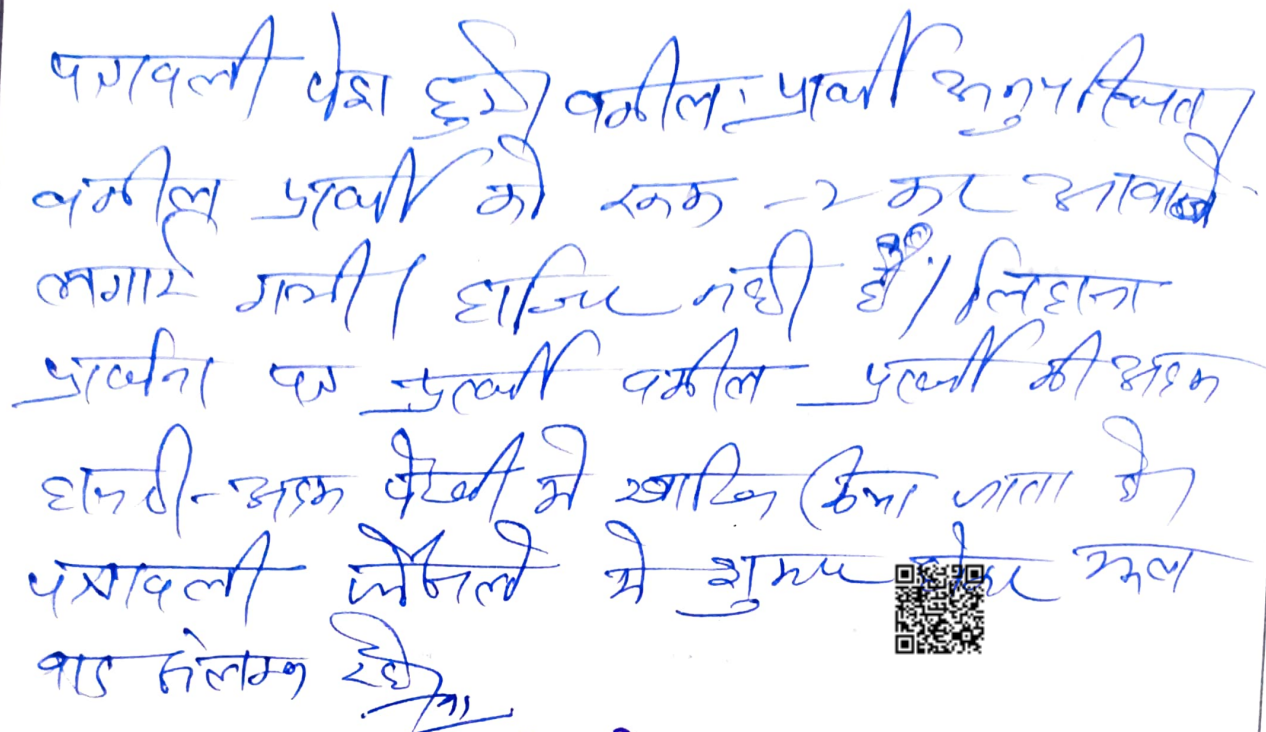 पत्रावली पेश हुयी। वकील प्रार्थी अनुपस्थित।
वकील प्रार्थी को रूक-२ कर आवाजे
लगाई गयी। हाजिर नही है। लिहाजा
प्रार्थना पत्र प्रार्थी वकील प्रार्थी की अदम
हाजरी-अदम पैरवी मे खारिज किया जाता है।
पत्रावली फैसले मे शुमार होकर
रहे।